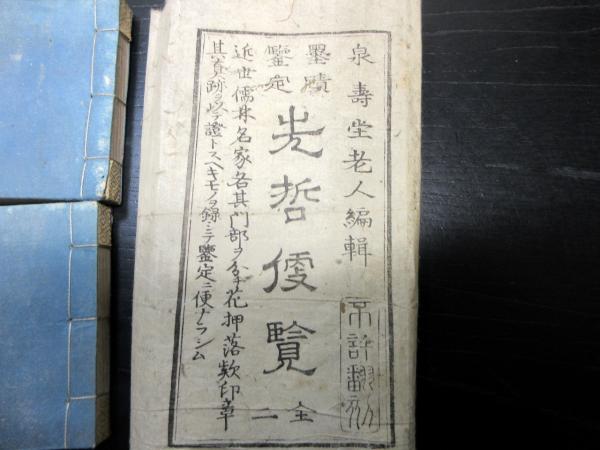 泉壽堂老人編輯
不許翻刻
墨蹟
鑒定
先哲便覽
全二
近世儒林名家各其門部ヲ分チ花押落款印章
其真跡ヲ以テ證トスヘキモノヲ錄シテ鑒定ニ便ナラシム